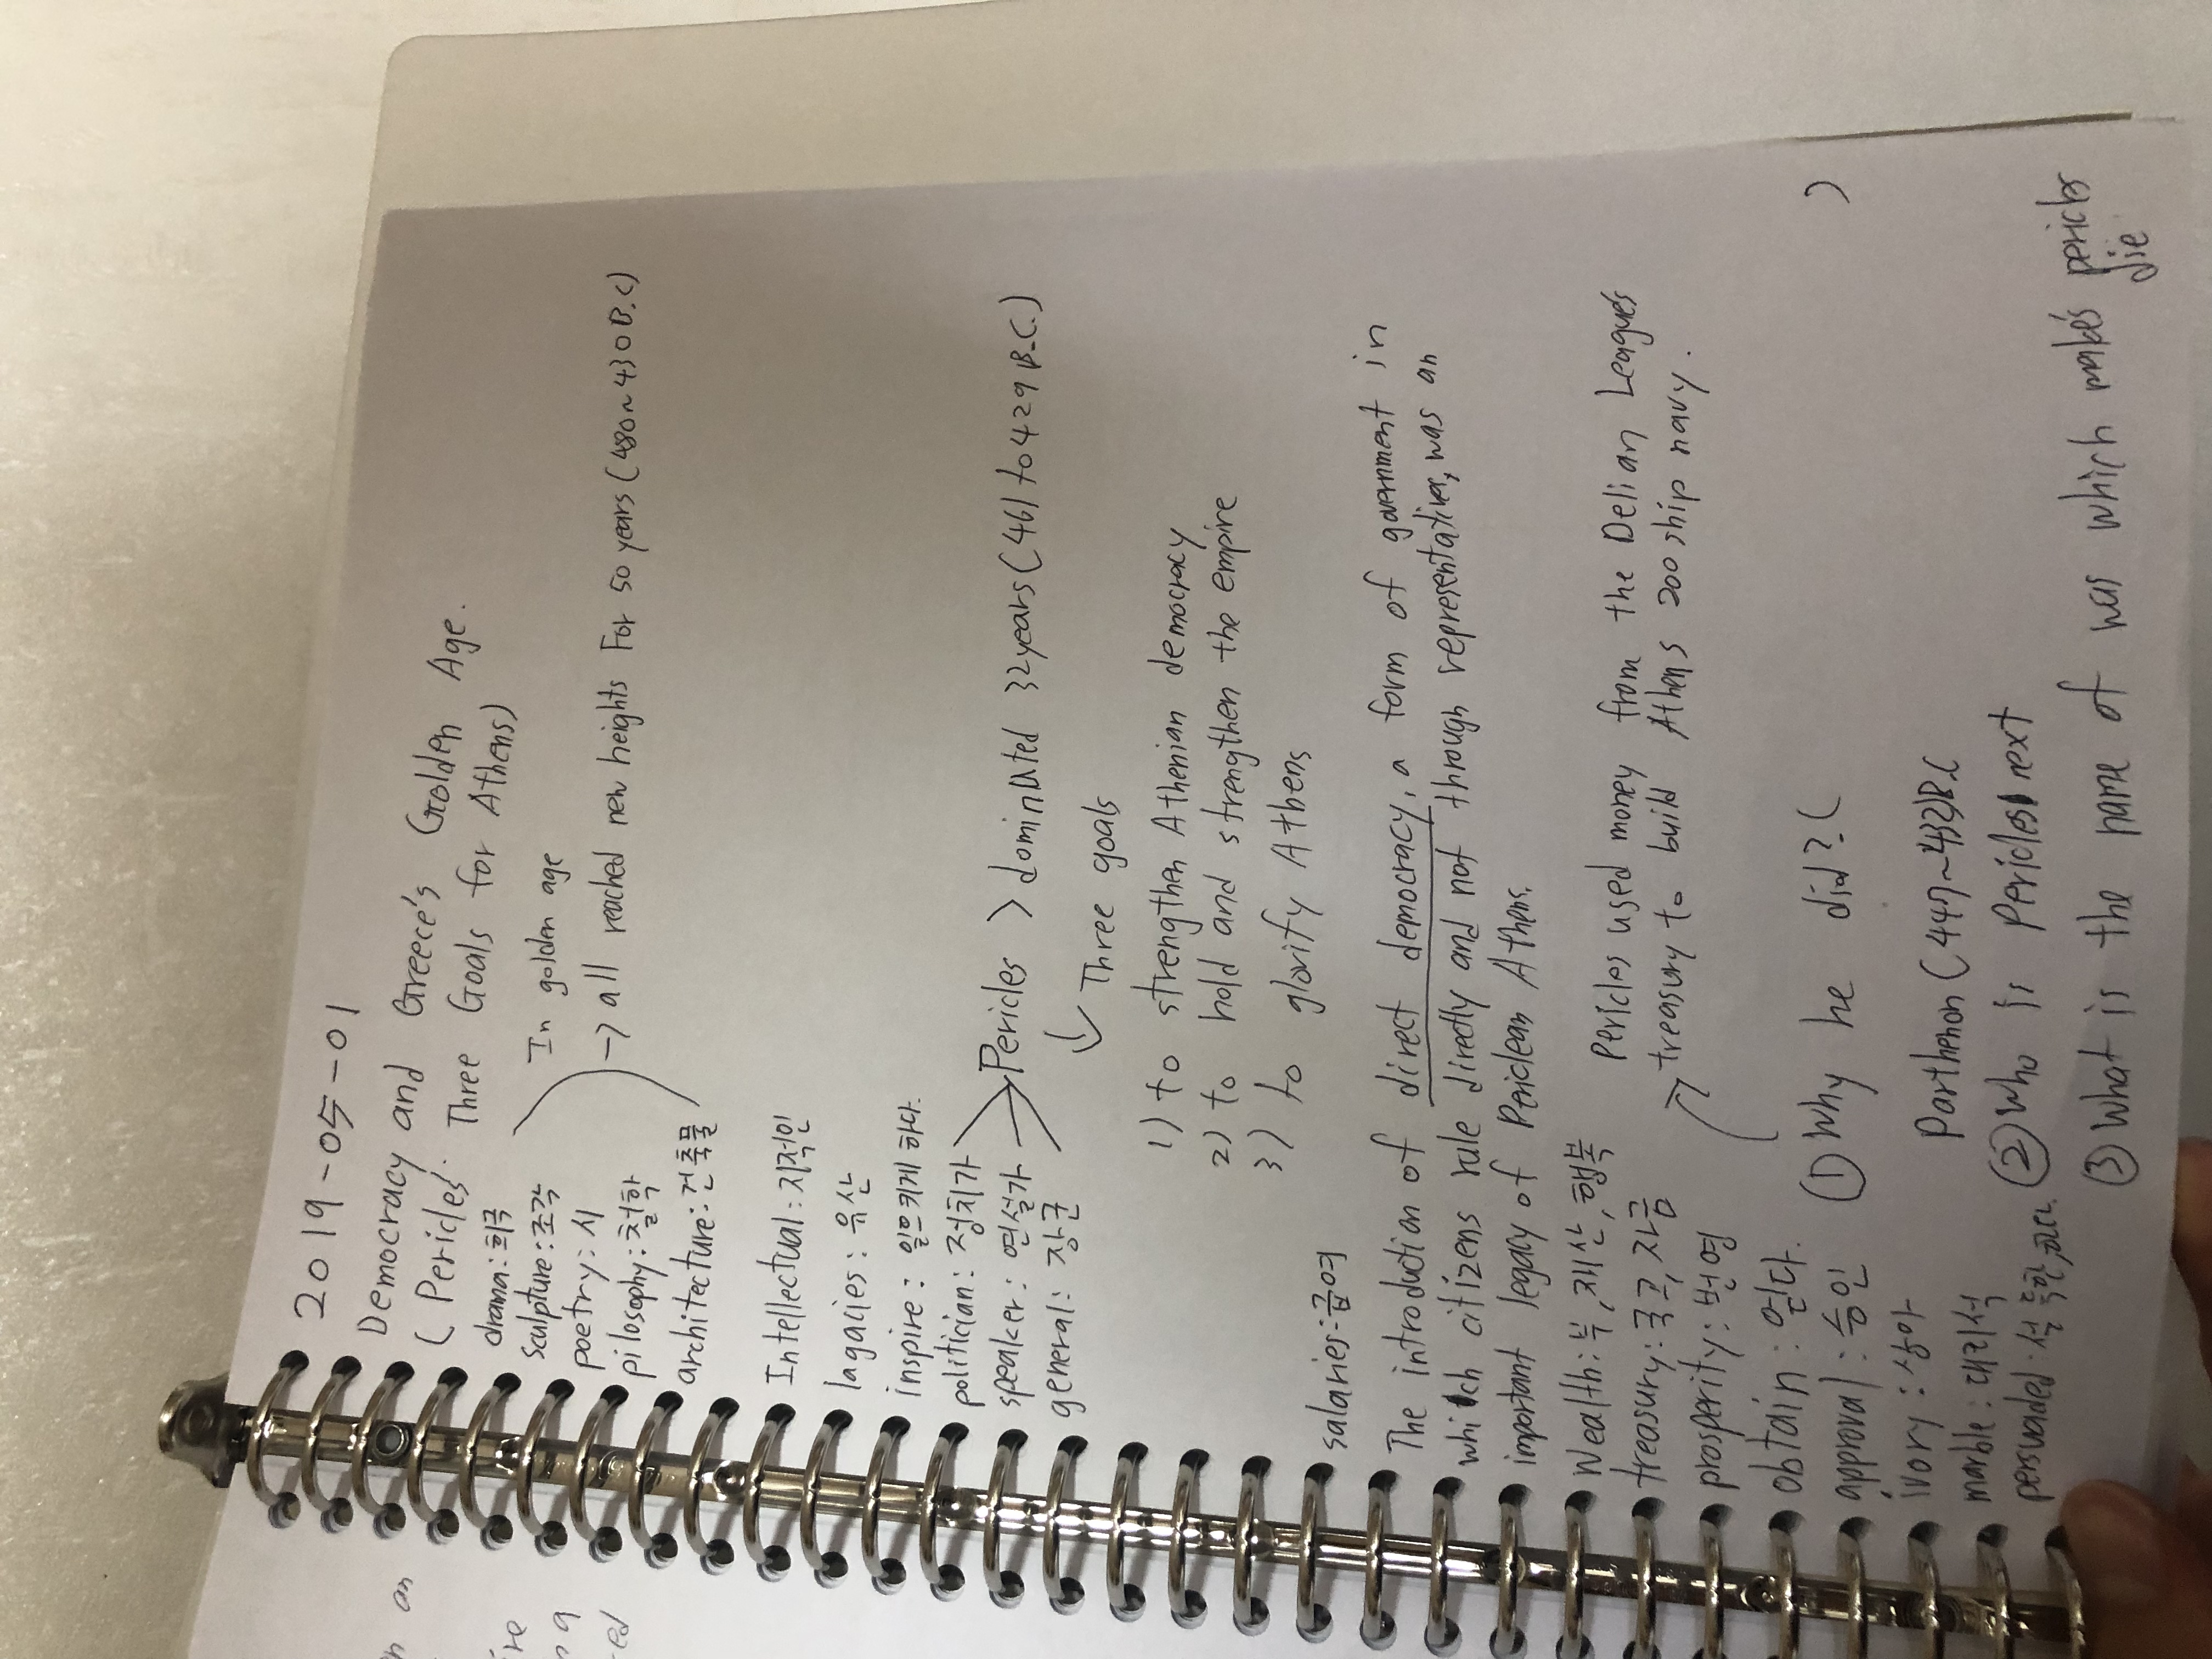 2019-05-01
Democracy and Greece's Golden Age.
( Pericles. Three Goals for Athens)
drama:희곡
In golden age
sculpture:조각
poetry:시
→ all reached new heights For 50 years (480~430B.C)
pilosophy:철학
architecture:건축물
Intellectual:지적인
lagacies: 유산
inspire: 일으키게 하다.
politician: 정치가
speaker: 연설가
Pericles > dominated 32years (461 to 429 B.C.)
general: 장군
Three goals
1) to strengthen Athenian democracy
2) to hold and strengthen the empire
3) to glorify Athens
salaries:급여
The introduction of direct democracy, a form of government in
which citizens rule directly and not through representatives, was an
important legacy of Periclean Athens.
Wealth: 부, 재산, 행복
Pericles used money from the Delian League's
treasury: 국고, 자금
treasury to build Athens 200 ship navy.
prosperity: 번영
obtain: 얻다.
① Why he did?( )
approval: 승인
ivory: 상아
Parthenon (447~432)B.C
marble: 대리석
② who is Pericles next
persuaded: 설득된,
③ What is the name of was which makes pericles
die
on
ire
ng
red